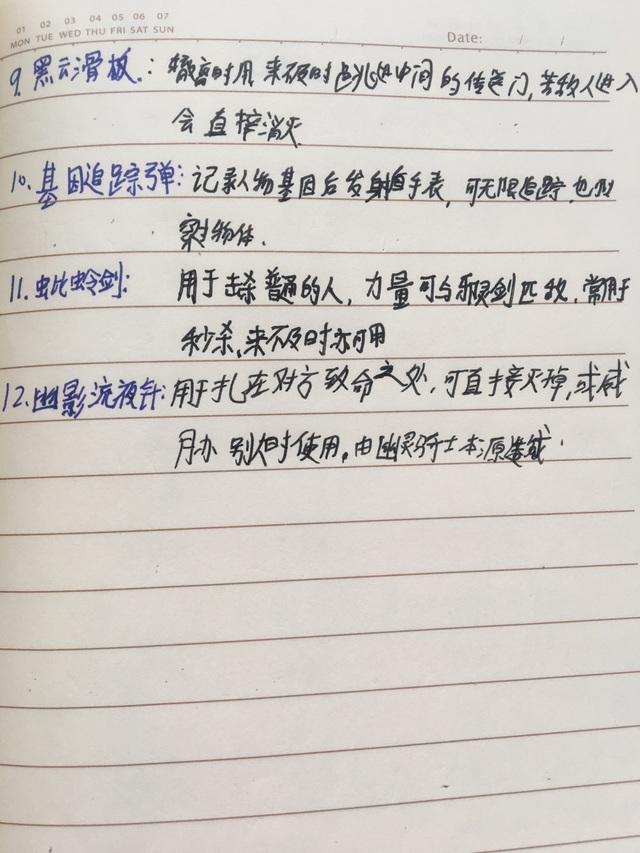 01 02 03 04 05 06 07
MON TUE WED THU FRI SAT SUN
Date: / /
9.黑云滑板:撤离时用来不及时逃进中间的传送门,若敌人进入
会直接消灭
10.基因追踪弹:记录人物基因后发射自手表,可无限追踪,也
物体.
11.蚍蛉剑:用于击杀普通的人,力量可与剑匹敌,常用于
秒杀,来不及时亦可用
12.幽影流夜针:用于扎在对方致命之处,可直接灭掉,或威
胁别人时使用,由幽灵骑士本源造成.